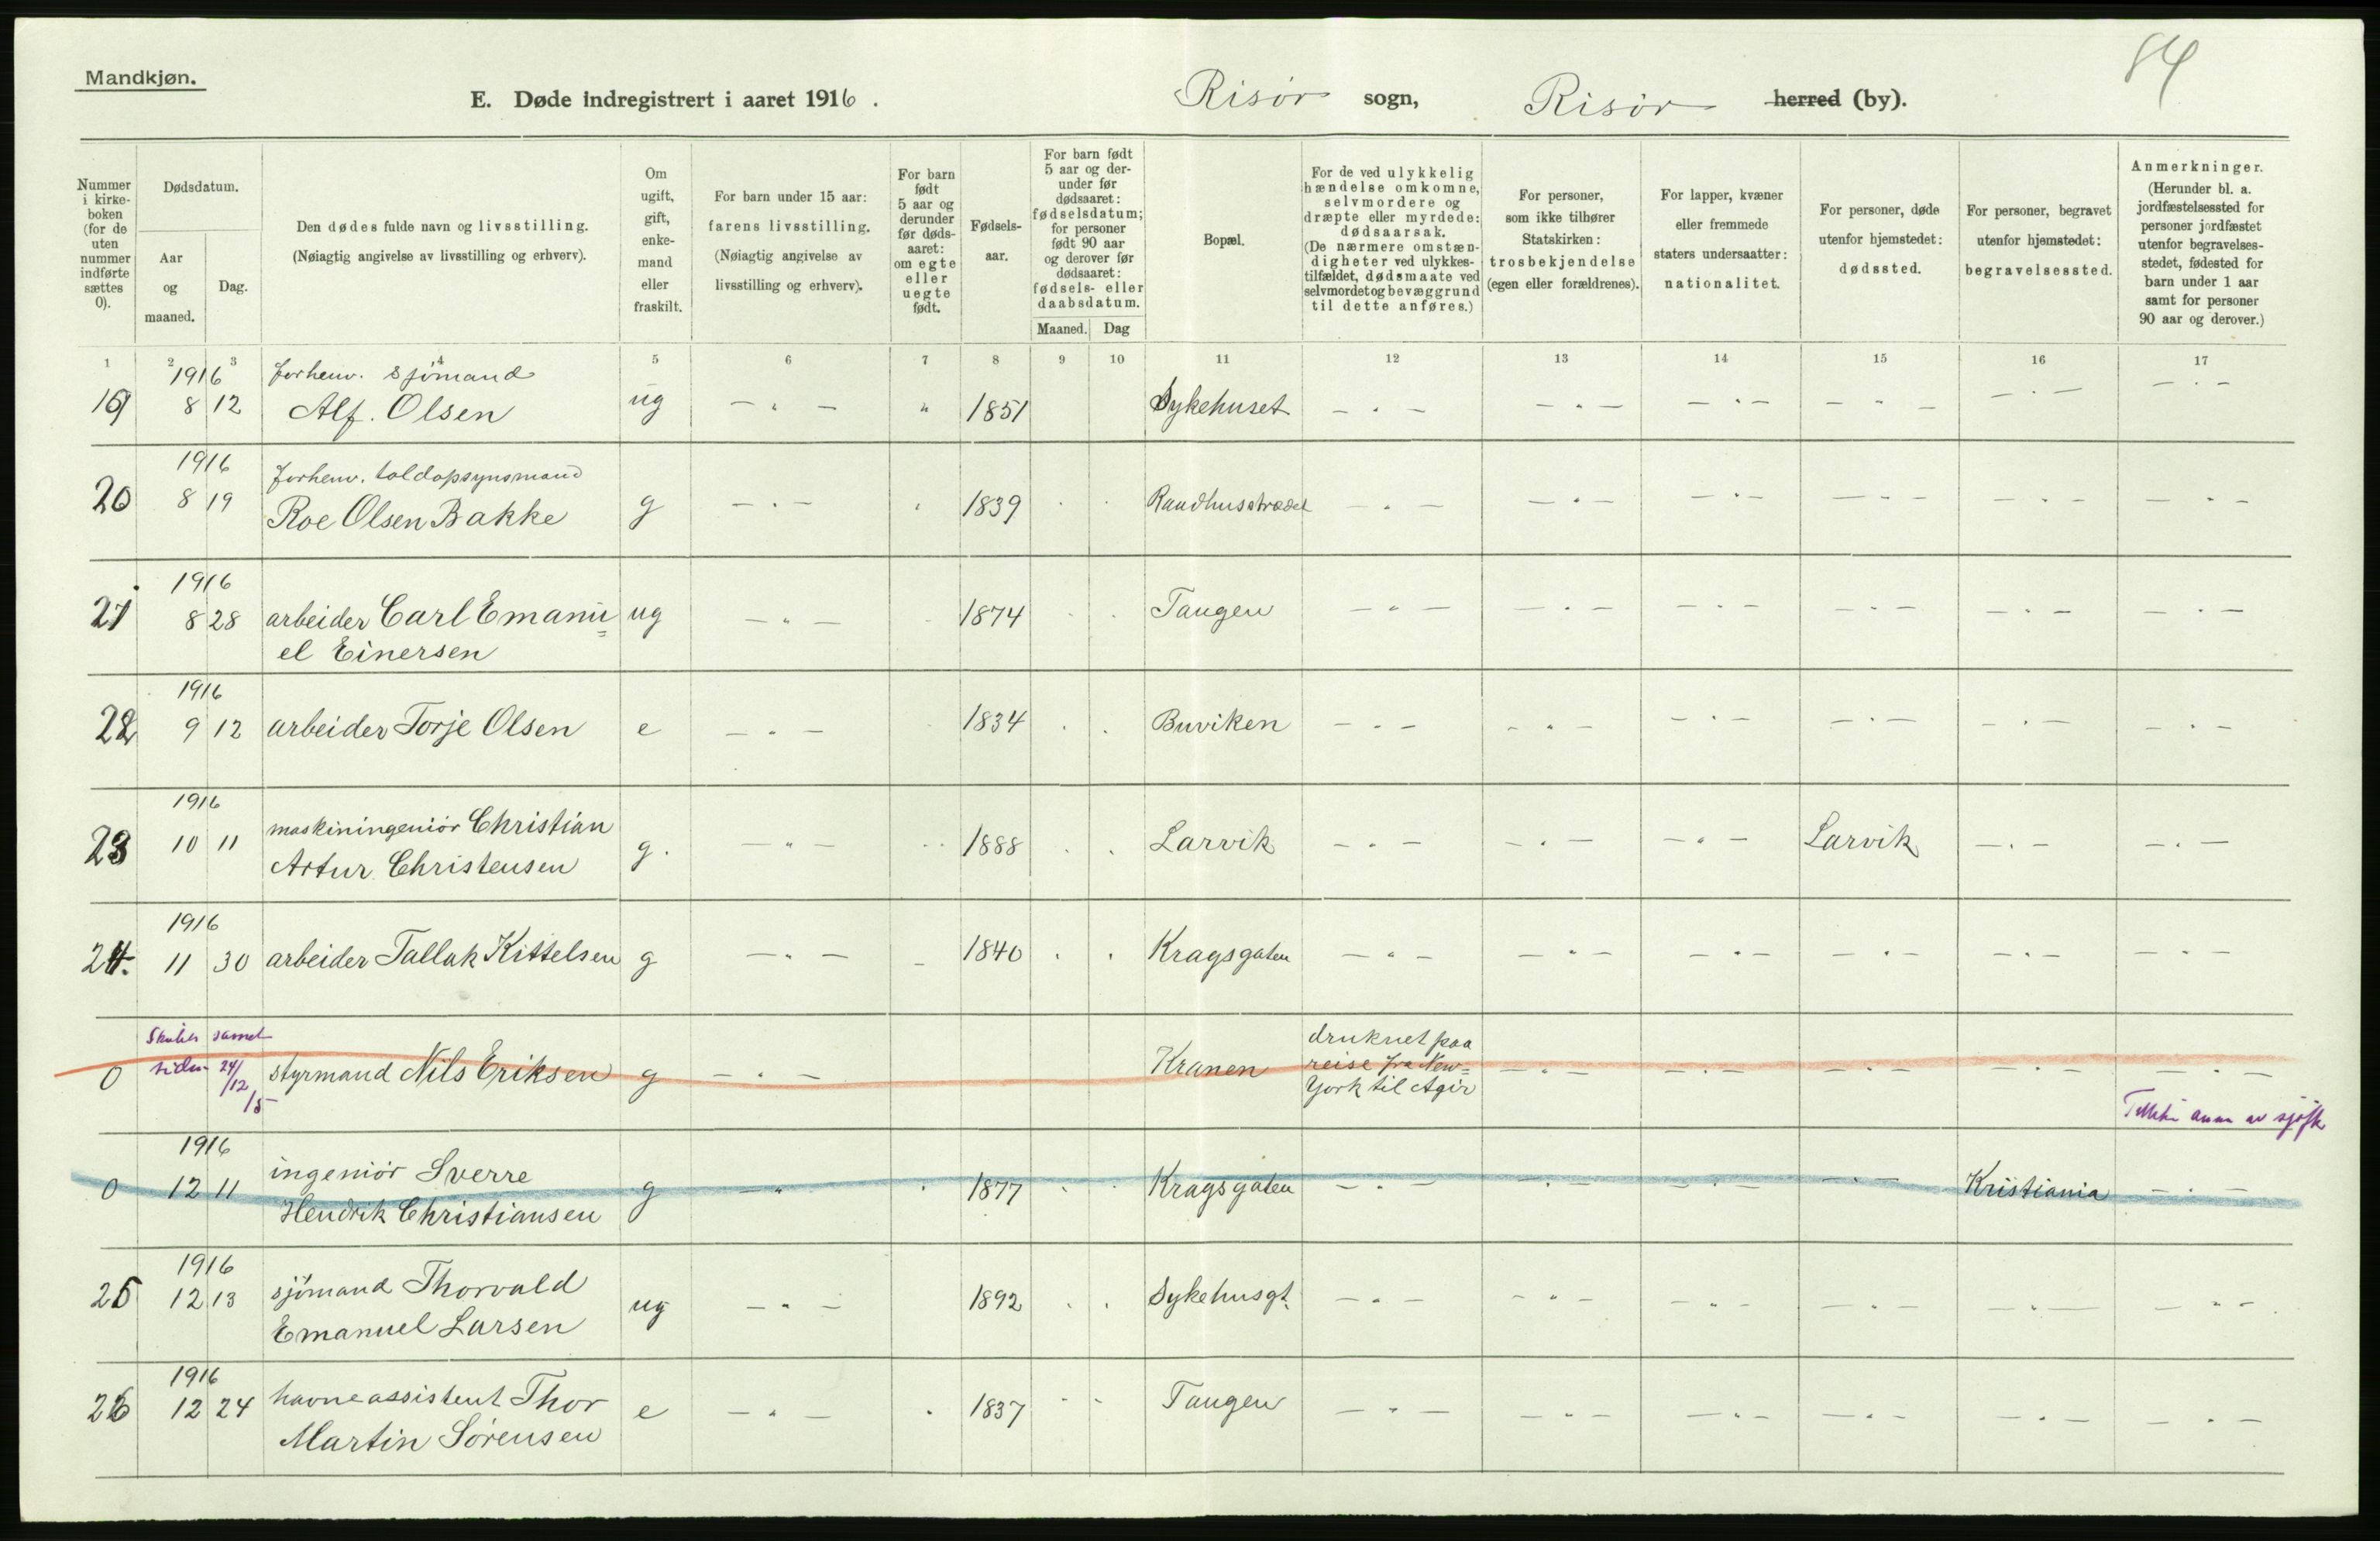 84
Mandkjøn.
E. Døde indregistrert i aaret 1916. Risør sogn, Risør herred (by).
Nummer i kirke-boken (for de uten nummer indførte sættes 0).
Dødsdatum.
Aar og maaned.
Dag.
Den dødes fulde navn og livsstilling.
(Nøiagtig angivelse av livsstilling og erhverv).
Om ugift, gift, enke-mand eller fraskilt.
For barn under 15 aar: farens livsstilling. (Nøiagtig angivelse av livsstilling og erhverv).
For barn født 5 aar og derunder før døds-aaret: om egte eller uegte født.
Fødsels-aar.
For barn født 5 aar og der-under før dødsaaret: fødselsdatum; for personer født 90 aar og derover før dødsaaret: fødsels- eller daabsdatum.
Maaned. Dag
Bopæl.
For de ved ulykkelig hændelse omkomne, selvmordere og dræpte eller myrdede: dødsaarsak. (De nærmere omstæn-digheter ved ulykkes-tilfældet, dødsmaate ved selvmordet og bevæggrund til dette anføres.)
For personer, som ikke tilhører Statskirken: trosbekjendelse (egen eller forældrenes).
For lapper, kvæner eller fremmede staters undersaatter: nationalitet.
For personer, døde utenfor hjemstedet: dødssted.
For personer, begravet utenfor hjemstedet: begravelsessted.
Anmerkninger. (Herunder bl. a. jordfæstelsessted for personer jordfæstet utenfor begravelses-stedet, fødested for barn under 1 aar samt for personer 90 aar og derover.)
1 2 3 4 5 6 7 8 9 10 11 12 13 14 15 16 17
1916 forhenv. sjømand
19 8 12 Alf. Olsen ug - " - " 1851 Sykehuset - " - - " - - " - - " - - " - - " -
1916 forhenv. toldopsynsmand
20 8 19 Roe Olsen Bakke g - " - " 1839 Raadhusstrædet - " - - " - - " - - " - - " - - " -
1916
21 8 28 arbeider Carl Emanu= ug - " - 1874 Tangen - " - - " - - " - - " - - " - - " -
el Einersen
1916
22 9 12 arbeider Torje Olsen e - " - 1834 Buviken - " - - " - - " - - " - - " - - " -
1916
23 10 11 maskiningeniör Christian
Artur Christensen g. - " - 1888 Larvik - " - - " - - " - Larvik - " - - " -
1916
24. 11 30 arbeider Tallak Kittelsen g - " - 1840 Kragsgaten - " - - " - - " - - " - - " - - " -
savnet
0 siden 24/12/15 styrmand Nils Eriksen g - " - Kranen druknet paa
reise fra New=
York til - " - - " - - " - - " - - " -
av sjøfk
1916
0 12 11 ingeniör Sverre
Hendrik Christiansen g - " - 1877 Kragsgaten - " - - " - - " - - " - Kristiania - " -
1916
25 12 13 sjömand Thorvald
Emanuel Larsen ug - " - 1892 Sykehusgt. - " - - " - - " - - " - - " - - " -
1916
26 12 24 havneassistent Thor
Martin Sörensen e - " - 1837 Tangen - " - - " - - " - - " - - " - - " -